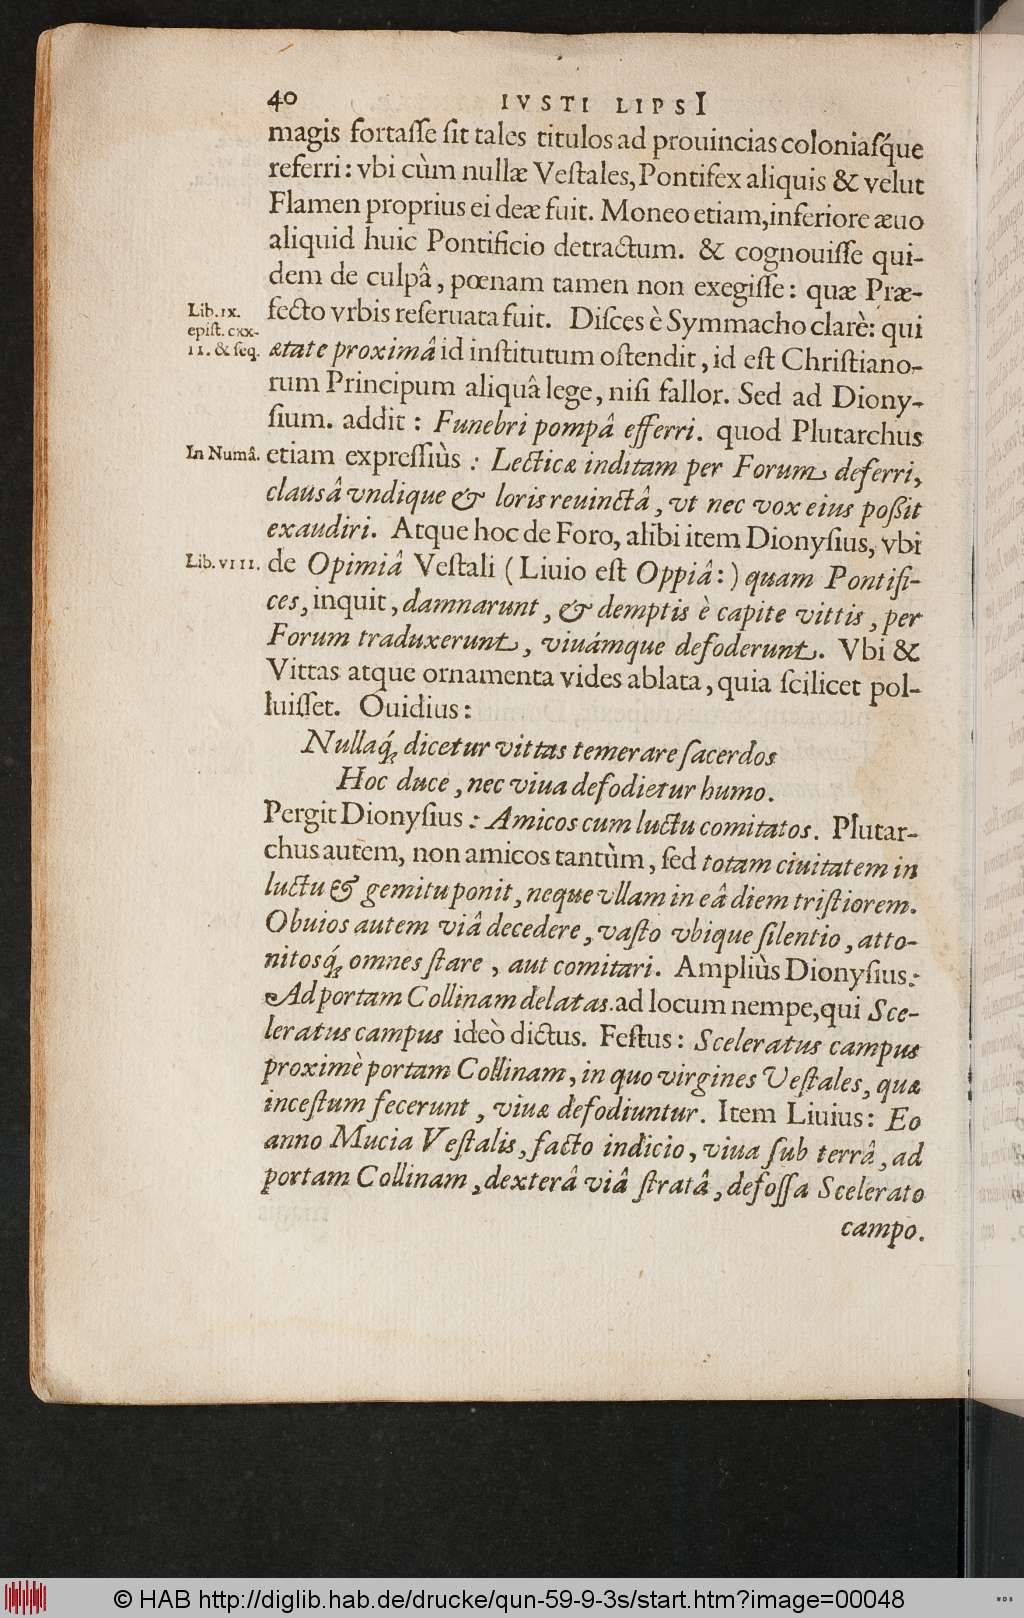 40 IVSTI LIPSI
magis fortasse sit tales titulos ad prouincias coloniasq́ue
referri: vbi cùm nullæ Vestales, Pontifex aliquis & velut
Flamen proprius ei deæ fuit. Moneo etiam, inferiore æuo
aliquid huic Pontificio detractum. & cognouisse qui-
dem de culpâ, pœnam tamen non exegisse: quæ Præ-
Lib. IX.
epist. CXX-
II. & seq.
fecto vrbis reseruata fuit. Disces è Symmacho clarè: qui
ætate proximâ id institutum ostendit, id est Christiano-
rum Principum aliquâ lege, nisi fallor. Sed ad Diony-
sium. addit: Funebri pompâ efferri. quod Plutarchus
In Numâ.
etiam expressiùs: Lecticæ inditam per Forum deferri,
clausâ vndique & loris reuinctâ, vt nec vox eius possit
exaudiri. Atque hoc de Foro, alibi item Dionysius, vbi
Lib. VIII.
de Opimiâ Vestali (Liuio est Oppiâ:) quam Pontifi-
ces, inquit, damnarunt, & demptis è capite vittis, per
Forum traduxerunt, viuámque defoderunt. Vbi &
Vittas atque ornamenta vides ablata, quia scilicet pol-
luisset. Ouidius:
Nullaq́; dicetur vittas temerare sacerdos
Hoc duce, nec viua defodietur humo.
Pergit Dionysius: Amicos cum luctu comitatos. Plutar-
chus autem, non amicos tantùm, sed totam ciuitatem in
luctu & gemitu ponit, neque vllam in eâ diem tristiorem.
Obuios autem viâ decedere, vasto vbique silentio, atto-
nitosq́; omnes stare, aut comitari. Ampliùs Dionysius:
Ad portam Collinam delatas. ad locum nempe, qui Sce-
leratus campus ideò dictus. Festus: Sceleratus campus
proximè portam Collinam, in quo virgines Vestales, quæ
incestum fecerunt, viuæ defodiuntur. Item Liuius: Eo
anno Mucia Vestalis, facto indicio, viua sub terrâ, ad
portam Collinam, dexterâ viâ stratâ, defossa Scelerato
campo.
© HAB http://diglib.hab.de/drucke/qun-59-9-3s/start.htm?image=00048